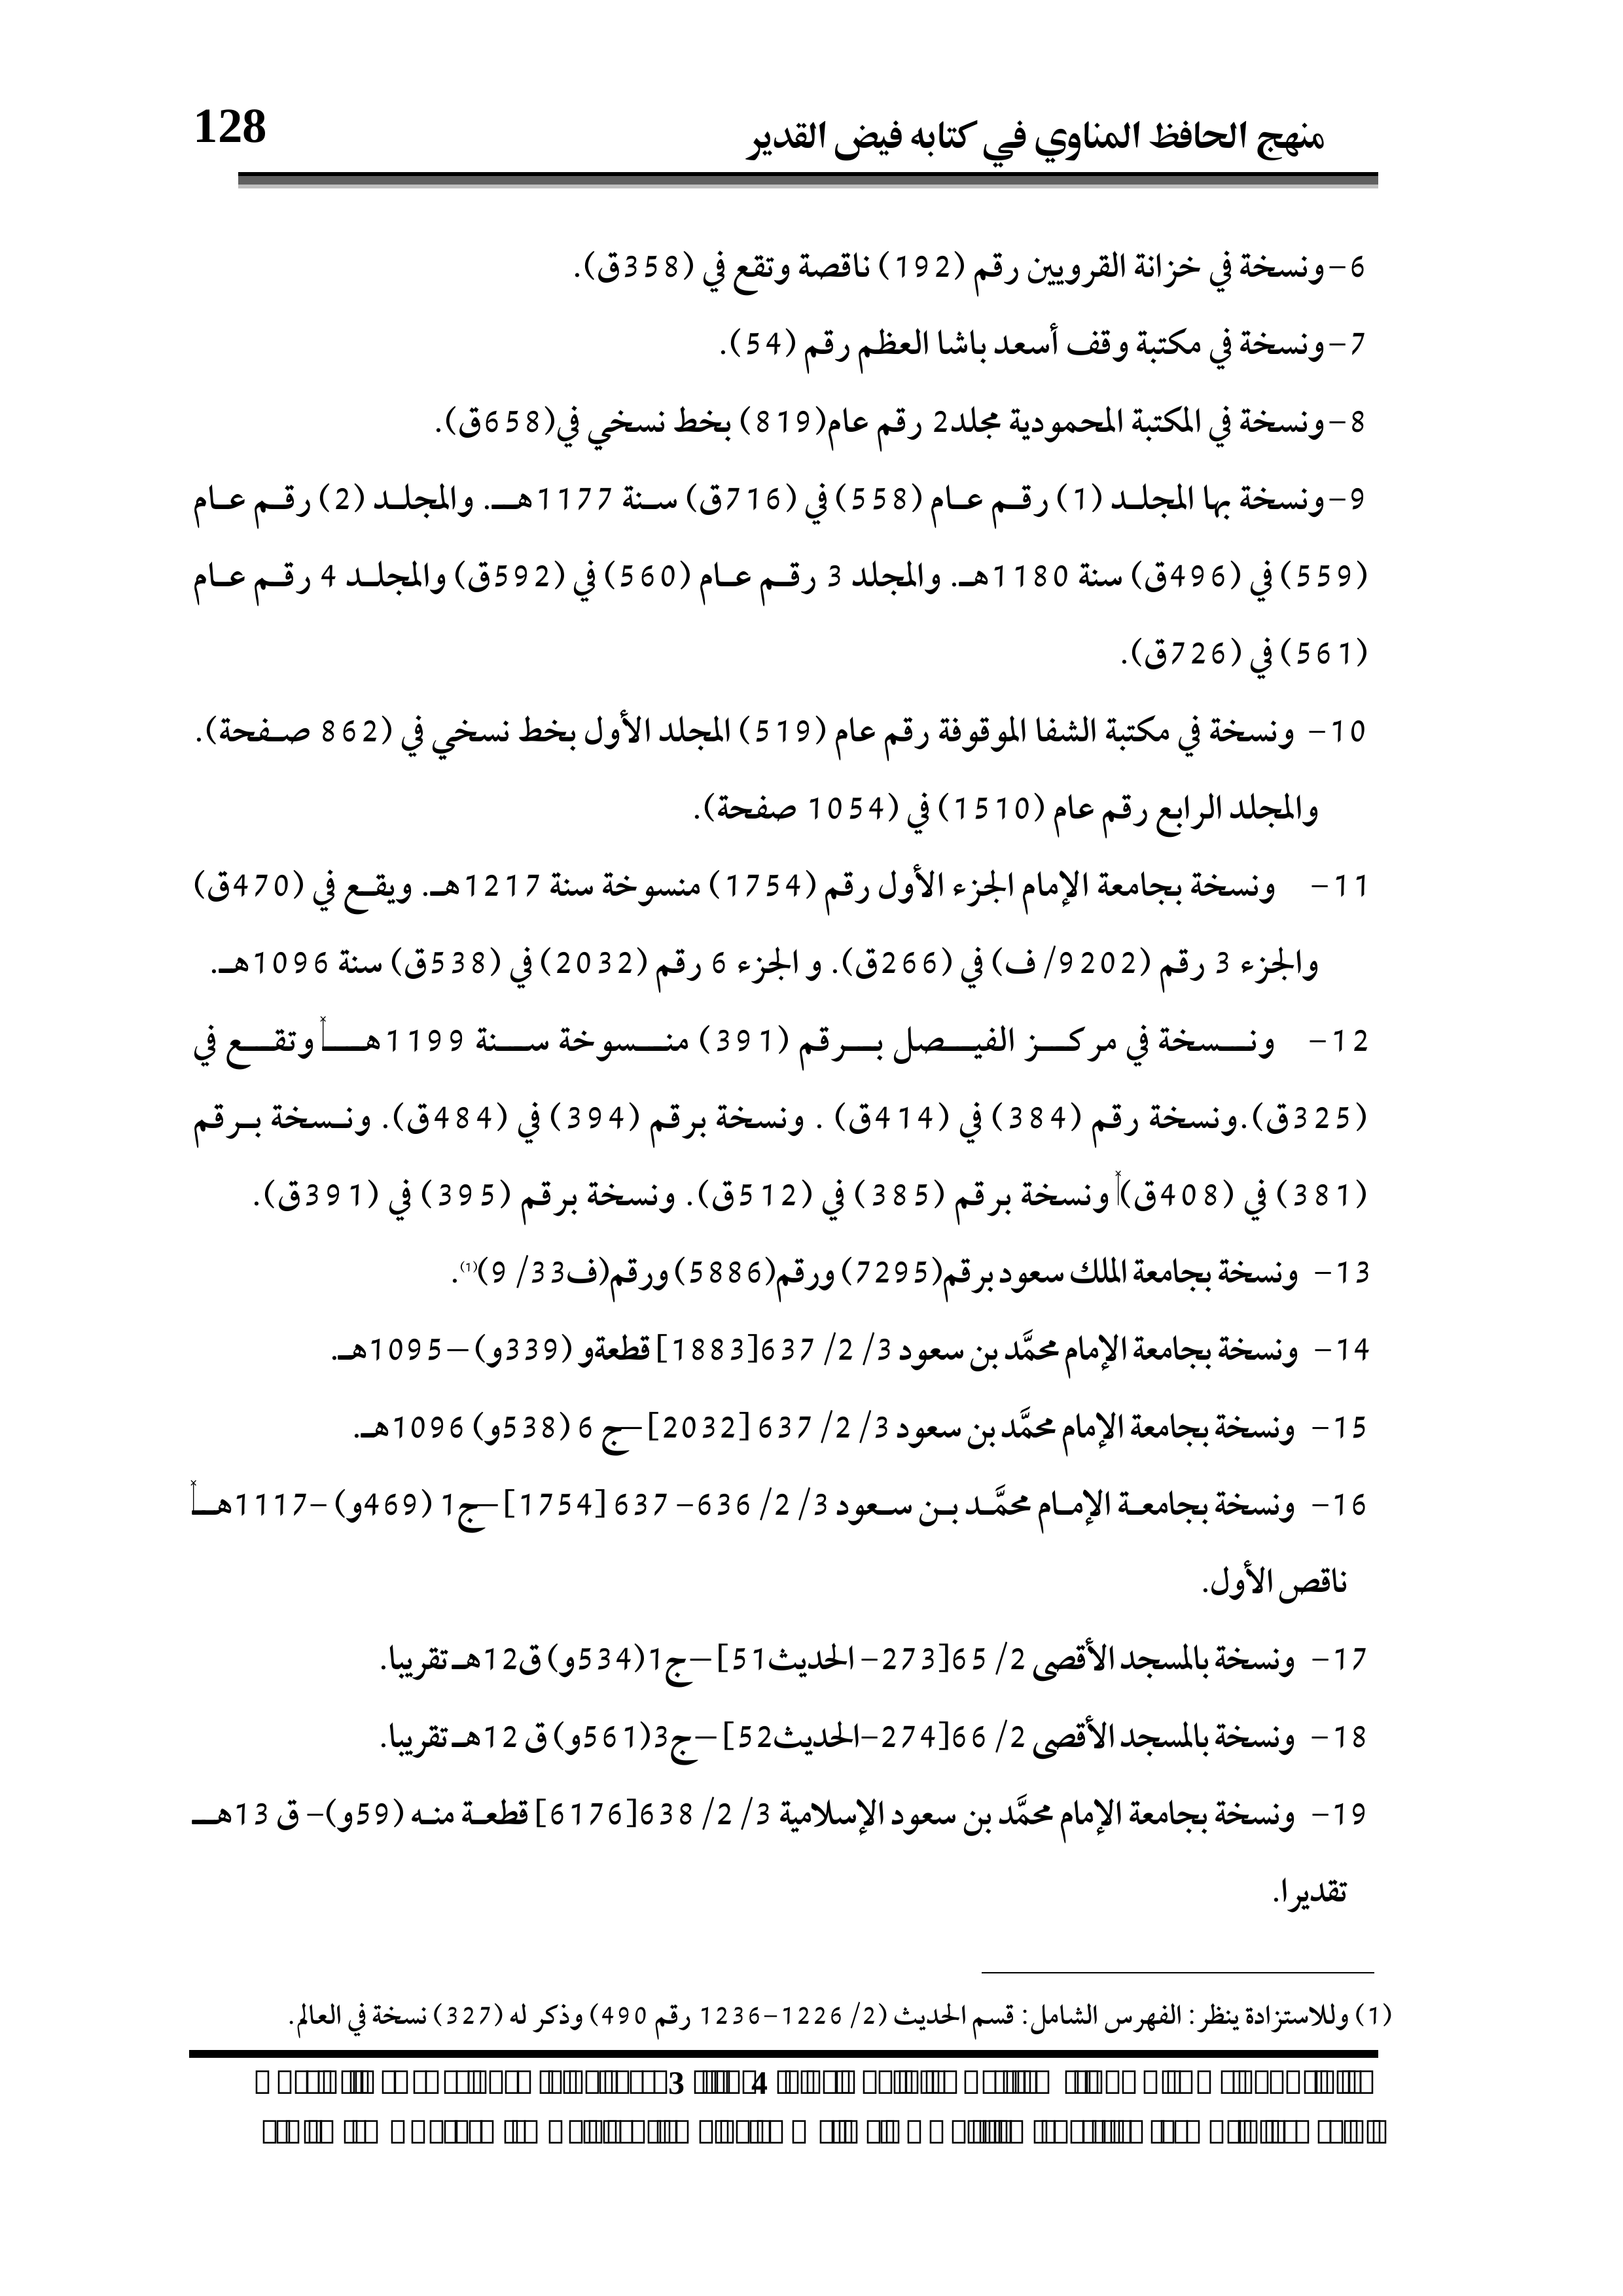 منهج الحافظ المناوي في كتابه فيض القدير
128
6-ونسخة في خزانة القرويين رقم (192) ناقصة وتقع في (358ق).
7-ونسخة في مكتبة وقف أسعد باشا العظم رقم (54).
8-ونسخة في المكتبة المحمودية مجلد2 رقم عام(819) بخط نسخي في(658ق).
9-ونسخة بها المجلد (1) رقم عام (558) في (716ق) سنة 1177هـ. والمجلد (2) رقم عام
(559) في (496ق) سنة 1180هـ. والمجلد 3 رقم عام (560) في (592ق) والمجلد 4 رقم عام
(561) في (726ق).
10- ونسخة في مكتبة الشفا الموقوفة رقم عام (519) المجلد الأول بخط نسخي في (862 صفحة).
والمجلد الرابع رقم عام (1510) في (1054 صفحة).
11- ونسخة بجامعة الإمام الجزء الأول رقم (1754) منسوخة سنة 1217هـ. ويقع في (470ق)
والجزء 3 رقم (9202/ ف) في (266ق). و الجزء 6 رقم (2032) في (538ق) سنة 1096هـ.
12- ونسخة في مركز الفيصل برقم (391) منسوخة سنة 1199هـ وتقع في
(325ق).ونسخة رقم (384) في (414ق) . ونسخة برقم (394) في (484ق). ونسخة برقم
(381) في (408ق) ونسخة برقم (385) في (512ق). ونسخة برقم (395) في (391ق).
13- ونسخة بجامعة الملك سعود برقم(7295) ورقم(5886) ورقم(ف33/ 9)(1).
14- ونسخة بجامعة الإمام محمَّد بن سعود 3/ 2/ 637[1883] قطعةو (339و)–1095هـ.
15- ونسخة بجامعة الإمام محمَّد بن سعود 3/ 2/ 637 [2032]–ج 6 (538و) 1096هـ.
16- ونسخة بجامعة الإمام محمَّد بن سعود 3/ 2/ 636- 637 [1754]–ج1 (469و)-1117هـ
ناقص الأول.
17- ونسخة بالمسجد الأقصى 2/ 65[273- الحديث51]–ج1(534و) ق12هـ تقريبا.
18- ونسخة بالمسجد الأقصى 2/ 66[274-الحديث52]–ج3(561و) ق 12هـ تقريبا.
19- ونسخة بجامعة الإمام محمَّد بن سعود الإسلامية 3/ 2/ 638[6176] قطعة منه (59و)- ق 13هـ
تقديرا.
(1) وللاستزادة ينظر: الفهرس الشامل: قسم الحديث (2/ 1226-1236 رقم 490) وذكر له (327) نسخة في العالم.
4 3